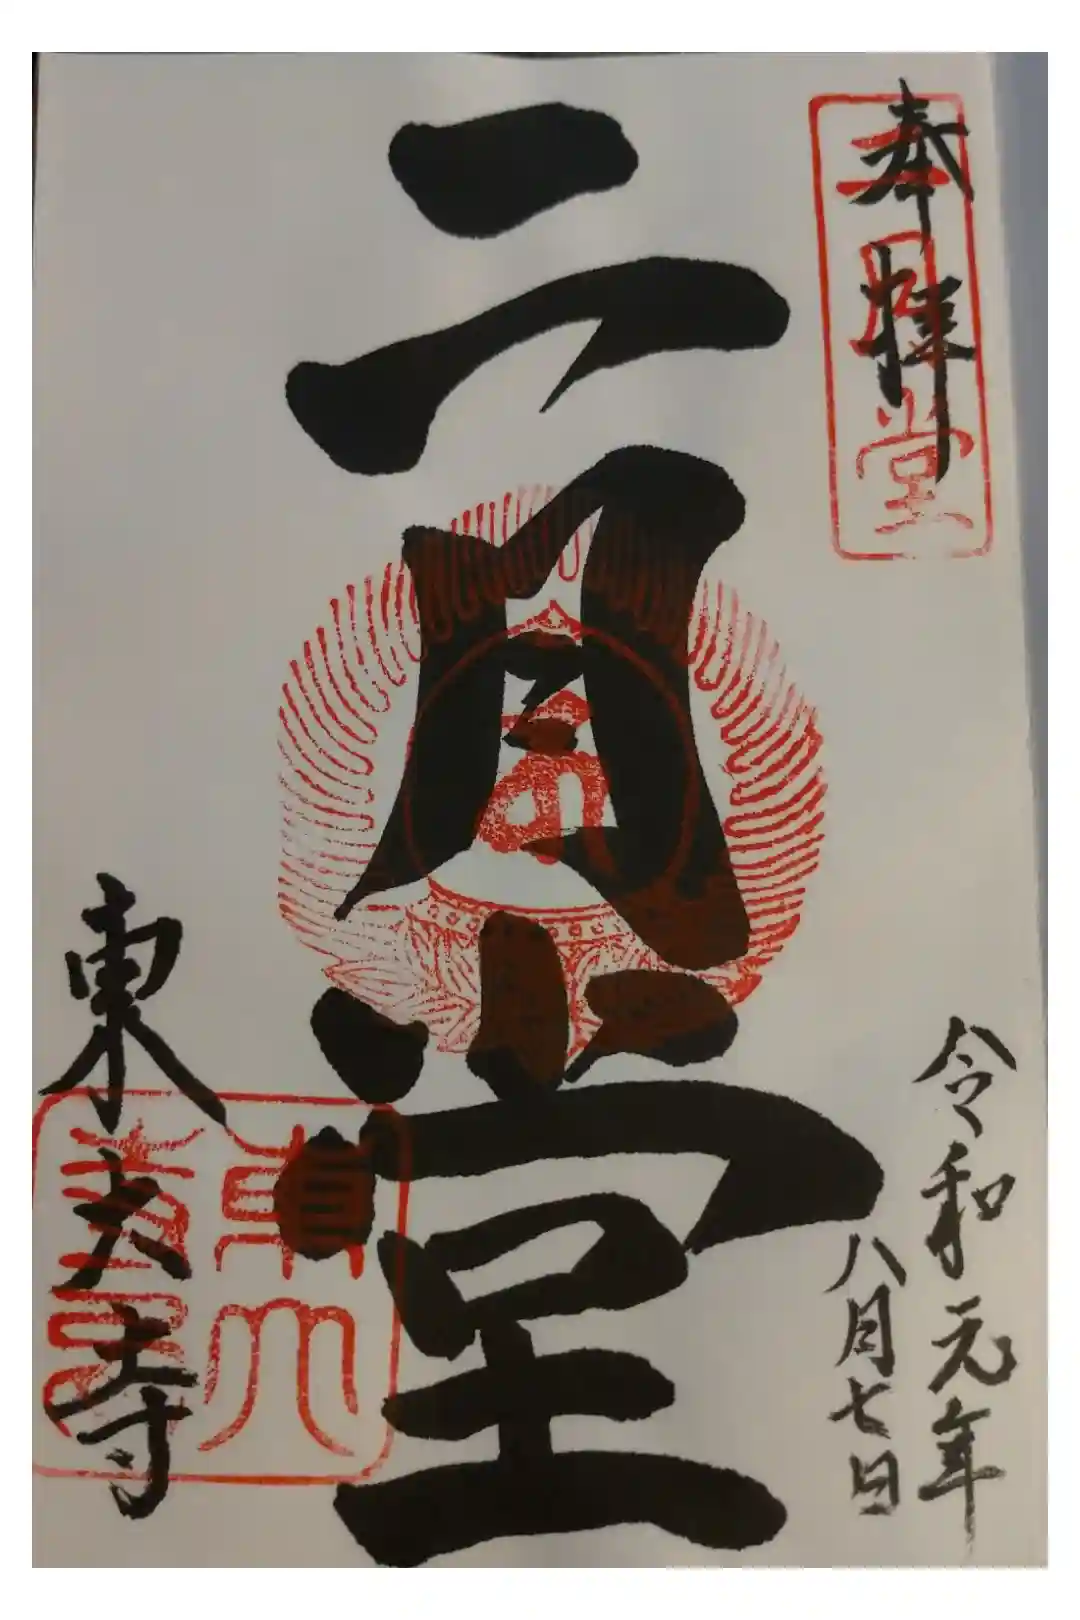 奉拝
二月堂
令和元年
八月七日
二月堂
東大寺